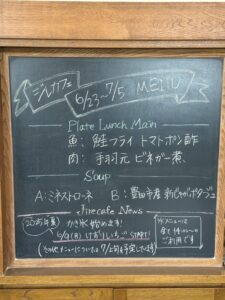 ジルカフェ
6/23〜7/5 MENU
Plate Lunch Main
魚: 鮭フライ トマトポン酢
肉: 手羽元 ビネガー煮
Soup
A:ミネストローネ B:豊田市産 新じゃがポタージュ
Jirecafe News
かき氷 始めます!
6/9(月) けずりいちご START!
※メニューは
全て
ご利用です